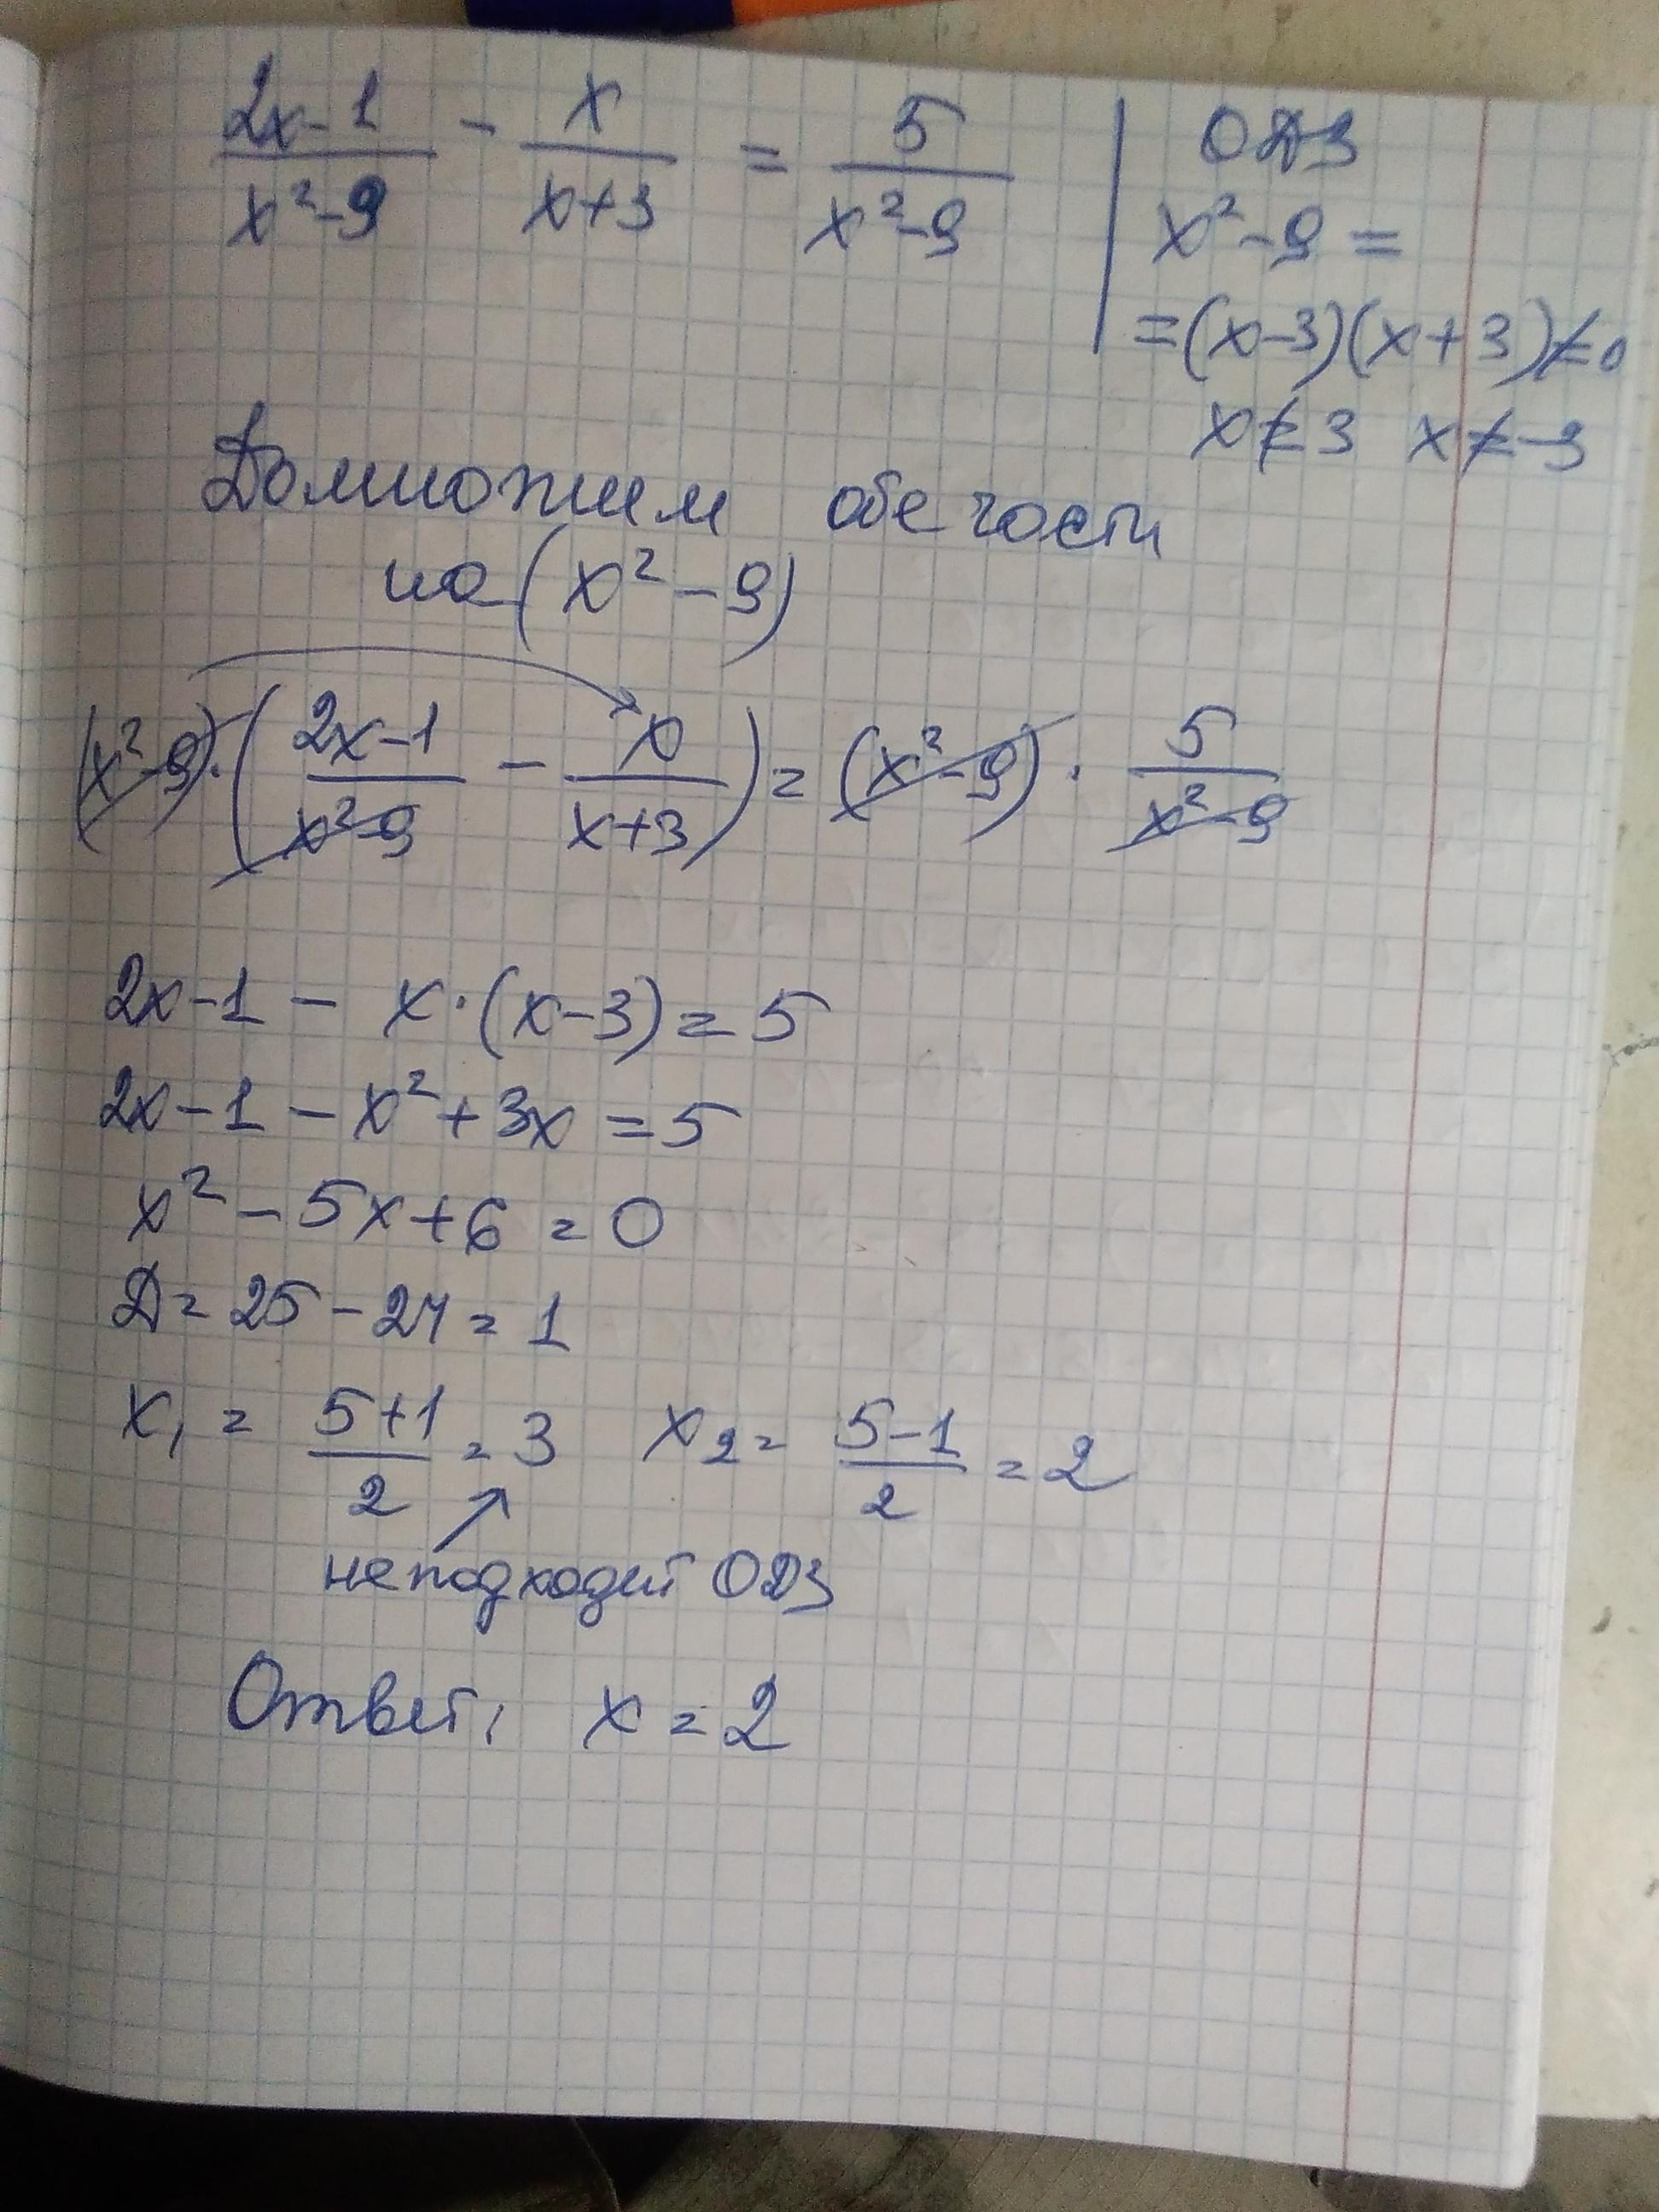 (2x-1)/(x²-9) - x/(x+3) = 5/(x²-9)
ОДЗ
x²-9 =
=(x-3)(x+3)≠0
x≠3 x≠-3
Домножим обе части
на (x²-9)
(x²-9)·((2x-1)/(x²-9) - x/(x+3)) = (x²-9) · 5/(x²-9)
2x-1 - x·(x-3) = 5
2x-1 - x²+3x = 5
x² - 5x+6 = 0
Д = 25 - 24 = 1
x₁ = (5+1)/2 = 3 x₂ = (5-1)/2 = 2
не подходит ОДЗ
Ответ: x = 2